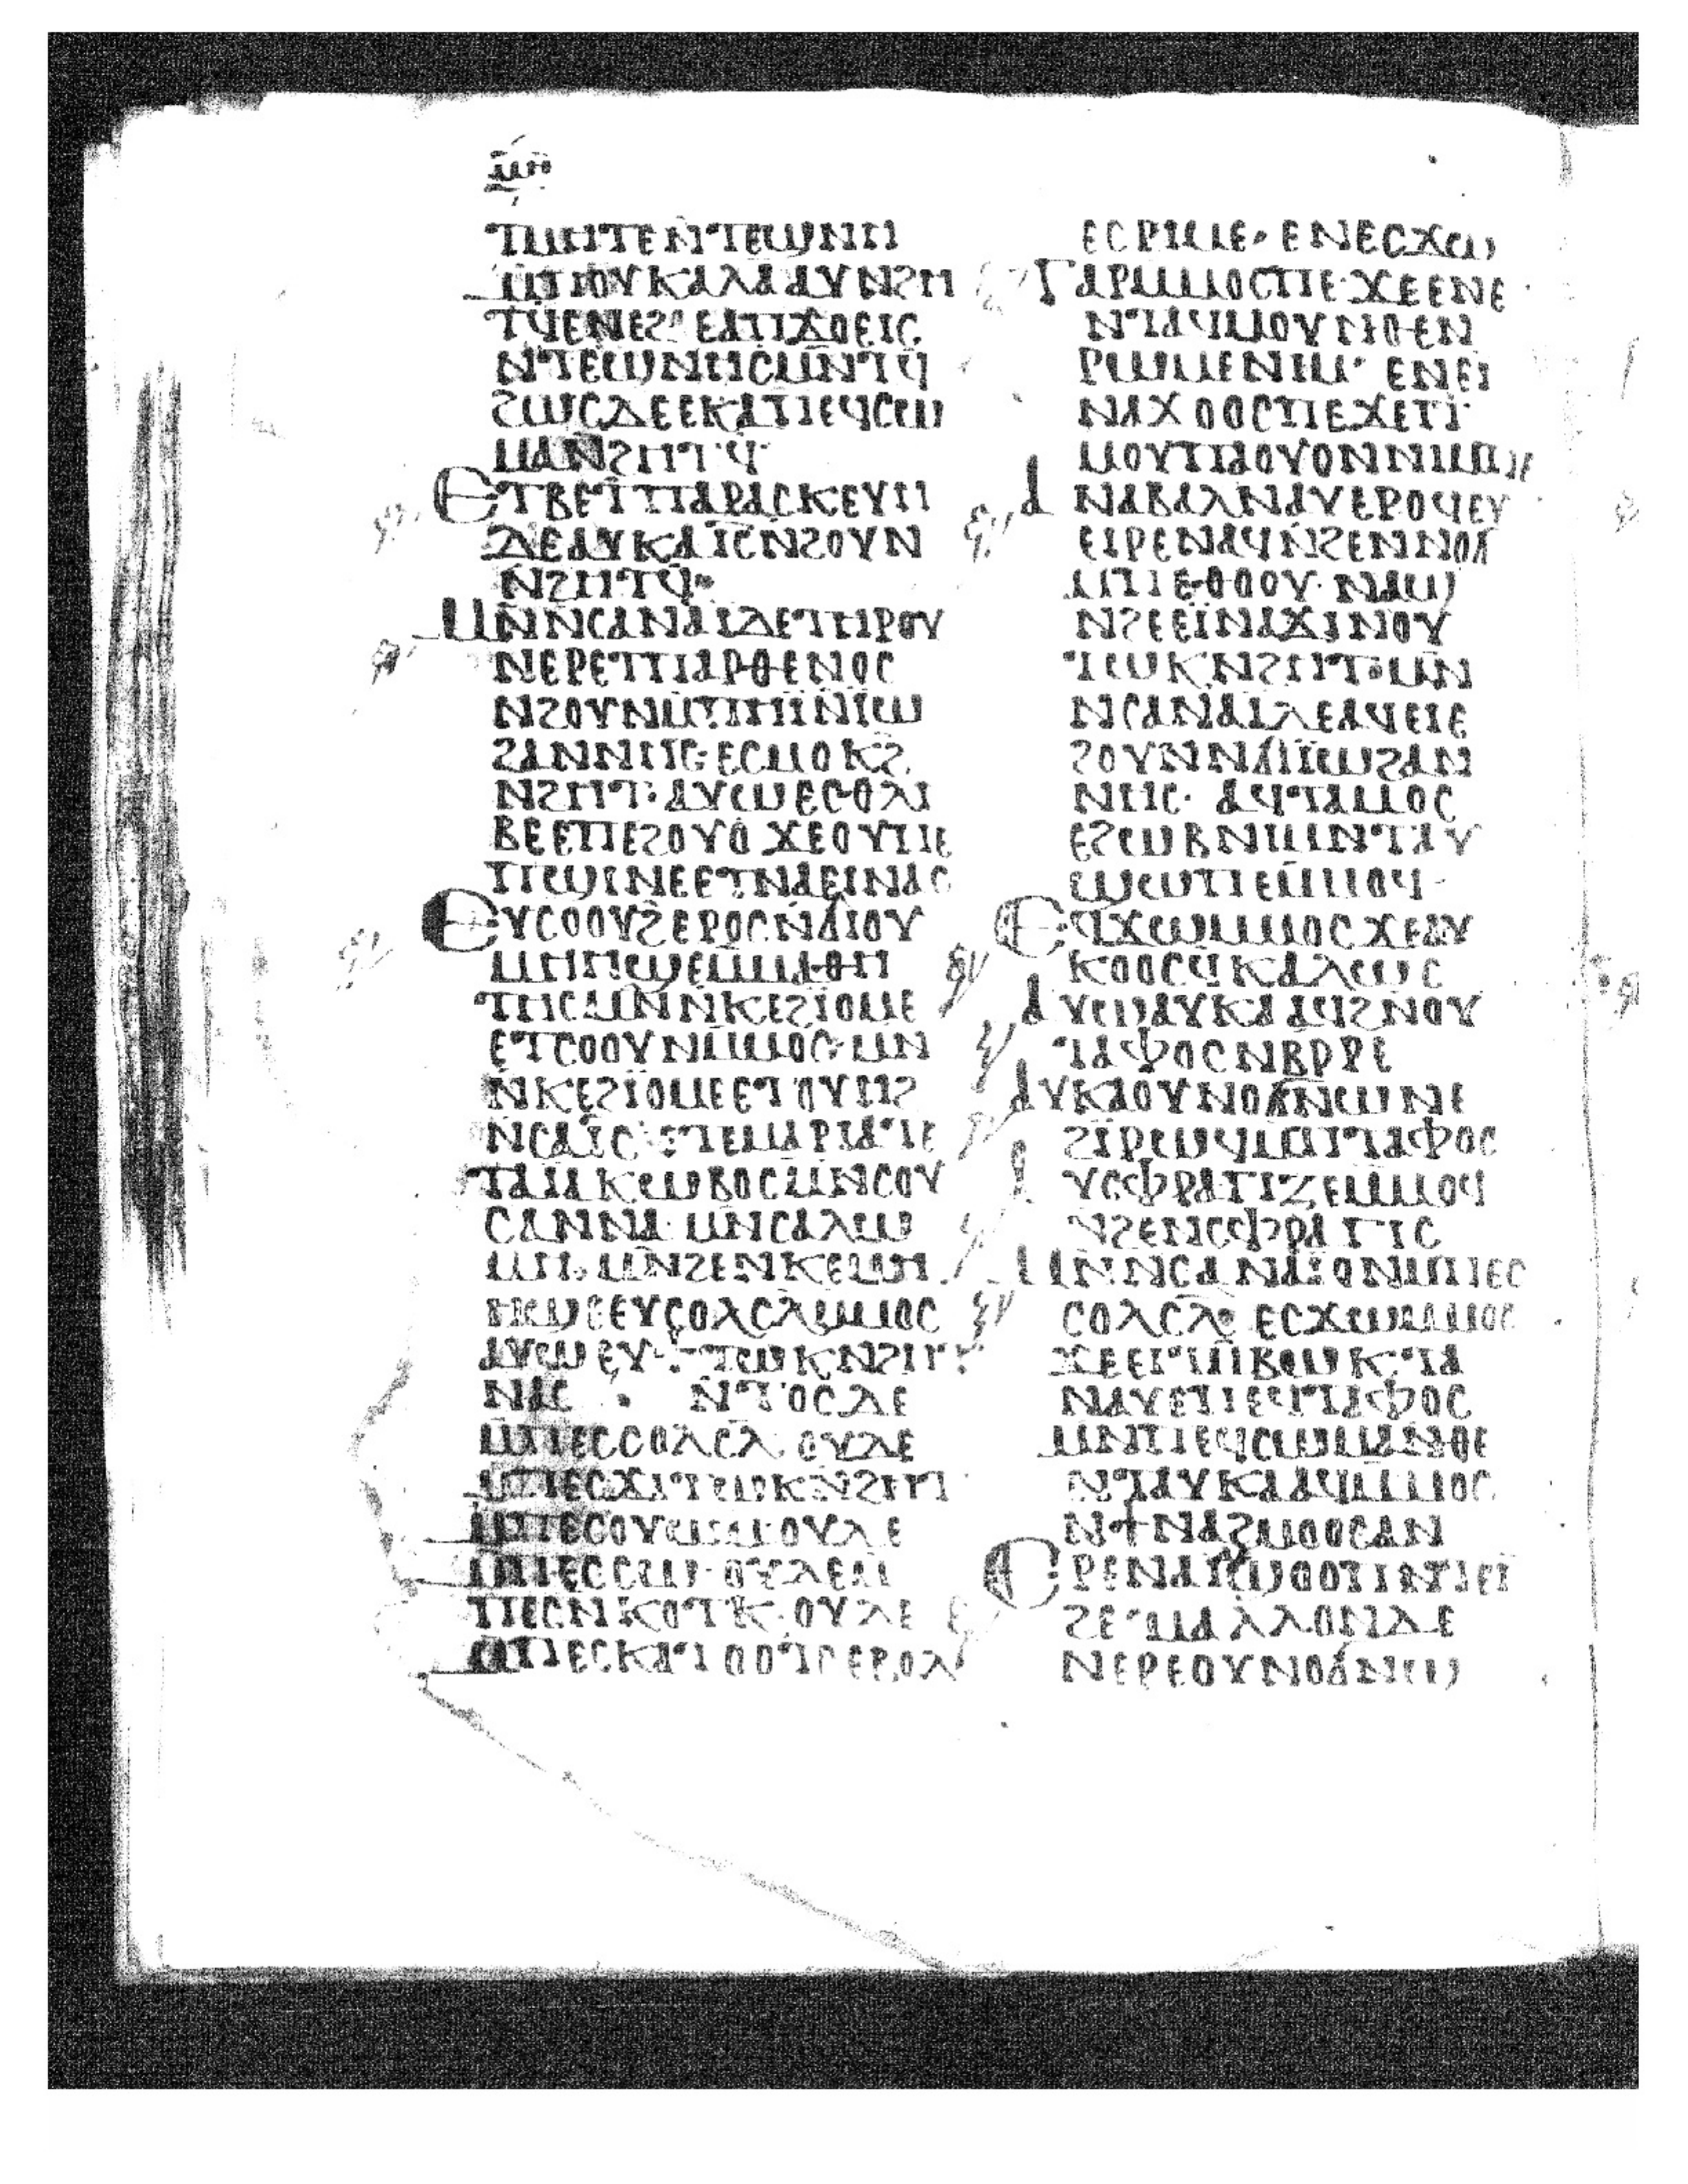 ⲧⲙⲏⲧⲉⲛⲧⲉϣⲛⲏ
ⲙⲡⲟⲩⲕⲁⲗⲁⲁⲩⲛϩⲏ
ⲧϥⲉⲛⲉϩ ⲉⲁⲡϫⲟⲉⲓⲥ
ⲛⲧⲉϣⲛⲏⲥⲙⲛⲧϥ
ϩⲱⲥⲇⲉⲉⲕⲁⲡⲉϥⲥⲱ
ⲙⲁⲛϩⲏⲧϥ
ⲉⲧⲃⲉⲧⲡⲁⲣⲁⲥⲕⲉⲩⲏ
ⲇⲉⲁⲩⲕⲁⲓⲥⲛϩⲟⲩⲛ
ⲛϩⲏⲧϥ
ⲙⲛⲛⲥⲁⲛⲁⲓⲇⲉⲧⲏⲣⲟⲩ
ⲛⲉⲣⲉⲧⲡⲁⲣⲑⲉⲛⲟⲥ
ⲛϩⲟⲩⲛⲙⲡⲏⲓⲛⲓⲱ
ϩⲁⲛⲛⲏⲥ·ⲉⲥⲙⲟⲕϩ
ⲛϩⲏⲧ·ⲁⲩⲱⲉⲥⲑⲗⲓ
ⲃⲉⲉⲡⲉϩⲟⲩⲟ ϫⲉⲟⲩⲡⲉ
ⲡϣⲓⲛⲉⲉⲧⲛⲁⲉⲓⲛⲁⲥ
ⲉⲩⲥⲟⲟⲩϩⲉⲣⲟⲥⲛϭⲓⲟⲩ
ⲙⲏⲏϣⲉⲙⲙⲁⲑⲏ
ⲧⲏⲥⲙⲛⲛⲕⲉϩⲓⲟⲙⲉ
ⲉⲧⲥⲟⲟⲩⲛⲙⲙⲟⲥ·ⲙⲛ
ⲛⲕⲉϩⲓⲟⲙⲉⲉⲧⲟⲩⲏϩ
ⲛⲥⲁⲓⲥ ⲉⲧⲉⲙⲁⲣⲓⲁⲧⲉ
ⲧⲁⲓⲁⲕⲱⲃⲟⲥⲙⲛⲥⲟⲩ
ⲥⲁⲛⲛⲁ·ⲙⲛⲥⲁⲗⲱ
ⲙⲏ·ⲙⲛϩⲉⲛⲕⲉⲙⲏ
ⲏϣⲉⲉⲩⲥⲟⲗⲥⲗⲙⲙⲟⲥ
ⲁⲩⲱⲉⲩϯⲧⲱⲕⲛϩⲏⲧ
ⲛⲁⲥ ⲛⲧⲟⲥⲇⲉ
ⲙⲡⲉⲥⲥⲟⲗⲥⲗ ⲟⲩⲇⲉ
ⲙⲡⲉⲥϫⲓⲧⲱⲕⲛϩⲏⲧ
ⲙⲡⲉⲥⲟⲩⲱⲙ·ⲟⲩⲇⲉ
ⲙⲡⲉⲥⲥⲱ·ⲟⲩⲇⲉⲙ
ⲡⲉⲥⲛⲕⲟⲧⲕ·ⲟⲩⲇⲉ
ⲙⲡⲉⲥⲕⲁⲧⲟⲟⲧⲥⲉⲃⲟⲗ
ⲉⲥⲣⲓⲙⲉ·ⲉⲛⲉⲥϫⲱ
ⲅⲁⲣⲙⲙⲟⲥⲡⲉ·ϫⲉⲉⲛⲉ
ⲛⲧⲁϥⲙⲟⲩⲛⲑⲉⲛ
ⲣⲱⲙⲉⲛⲓⲙ· ⲉⲛⲉⲓ
ⲛⲁϫⲟⲟⲥⲡⲉϫⲉⲡ
ⲙⲟⲩⲡⲁⲟⲩⲟⲛⲛⲓⲙⲡⲉ
ⲁⲛⲁⲃⲁⲗⲛⲁⲩⲉⲣⲟϥⲉⲩ
ⲉⲓⲣⲉⲛⲁϥⲛϩⲉⲛⲛⲟϭ
ⲙⲡⲉⲑⲟⲟⲩ·ⲛⲁϣ
ⲛϩⲉⲉⲓⲛⲁϫⲓⲛⲟⲩ
ⲧⲱⲕⲛϩⲏⲧ·ⲙⲛ
ⲛⲥⲁⲛⲁⲓⲇⲉⲁϥⲉⲓⲉ
ϩⲟⲩⲛⲛϭⲓⲓⲱϩⲁⲛ
ⲛⲏⲥ· ⲁϥⲧⲁⲙⲟⲥ
ⲉϩⲱⲃⲛⲓⲙⲛⲧⲁⲩ
ϣⲱⲡⲉⲙⲙⲟϥ·
ⲉϥϫⲱⲙⲙⲟⲥϫⲉⲁⲩ
ⲕⲟⲟⲥϥⲕⲁⲗⲱⲥ
ⲁⲩⲱⲁⲩⲕⲁⲁϥϩⲛⲟⲩ
ⲧⲁⲫⲟⲥⲛⲃⲣⲣⲉ
ⲁⲩⲕⲁⲟⲩⲛⲟϭⲛⲱⲛⲉ
ϩⲓⲣⲱϥⲙⲡⲧⲁⲫⲟⲥ
ⲁⲩⲥⲫⲣⲁⲅⲓⲍⲉⲙⲙⲟϥ
ⲛϩⲉⲛⲥⲫⲣⲁⲅⲓⲥ
ⲙⲛⲛⲥⲁⲛⲁⲓⲟⲛⲙⲡⲉⲥ
ⲥⲟⲗⲥⲗ· ⲉⲥϫⲱⲙⲙⲟⲥ
ϫⲉⲉⲓⲧⲙⲃⲱⲕ·ⲧⲁ
ⲛⲁⲩⲉⲡⲉϥⲧⲁⲫⲟⲥ
ⲙⲛⲡⲉϥⲥⲱⲙⲁⲛⲑⲉ
ⲛⲧⲁⲩⲕⲁⲁϥⲙⲙⲟⲥ
ⲛϯⲛⲁϩⲙⲟⲟⲥⲁⲛ
ⲉⲣⲉⲛⲁⲓ
ϩⲉ ⲙⲁⲗⲗⲟⲛⲇⲉ
ⲛⲉⲣⲉⲟⲩⲛⲟϭⲛϣ